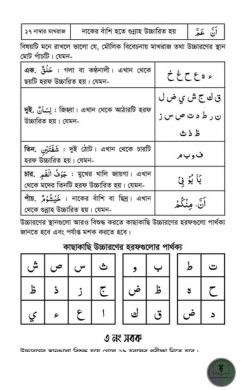 ১৭ নাম্বার মাখরাজ | নাকের বাঁশি হতে গুন্নাহ উচ্চারিত হয় | أَنَّ عَمَّ
বিষয়টি মনে রাখলে ভালো যে, মৌলিক বিবেচনায় মাখরাজ তথা উচ্চারণের স্থান
মোট পাঁচটি। যেমন-
এক. حَلْقٌ : গলা বা কণ্ঠনালী। এখান থেকে
ছয়টি হরফ উচ্চারিত হয়। যেমন-
ء ه ع ح غ خ
দুই. لِسَانٌ : জিহ্বা। এখান থেকে আঠারটি হরফ
উচ্চারিত হয়। যেমন-
ق ك ج ش ي ض ل
ن ر ط د ت ص س ز
ظ ذ ث
তিন. شَفَتَيْنِ : দুই ঠোঁট। এখান থেকে চারটি
হরফ উচ্চারিত হয়। যেমন-
ف و ب م
চার. جَوْفُ الْفَمِ : মুখের খালি জায়গা। এখান
থেকে মদের তিনটি হরফ উচ্চারিত হয়। যেমন-
بَا بُوْ بِيْ
পাঁচ. خَيْشُوْمٌ : নাকের বাঁশি বা ছিদ্র। এখান
থেকে গুন্নাহ উচ্চারিত হয়। যেমন-
أَنَّ. مِنْكُمْ
উচ্চারণের স্থানগুলো আরও বিশুদ্ধ করতে কাছাকাছি উচ্চারণের হরফগুলো পার্থক্য
জানতে হবে এবং পর্যাপ্ত মশক করতে হবে।
কাছাকাছি উচ্চারণের হরফগুলোর পার্থক্য
ط ت | و ب | ث س ص ش
ه ح | ض ظ | ج ز ذ ظ
ق ك | ض د | ع ا ء ي
৩ নং সবক